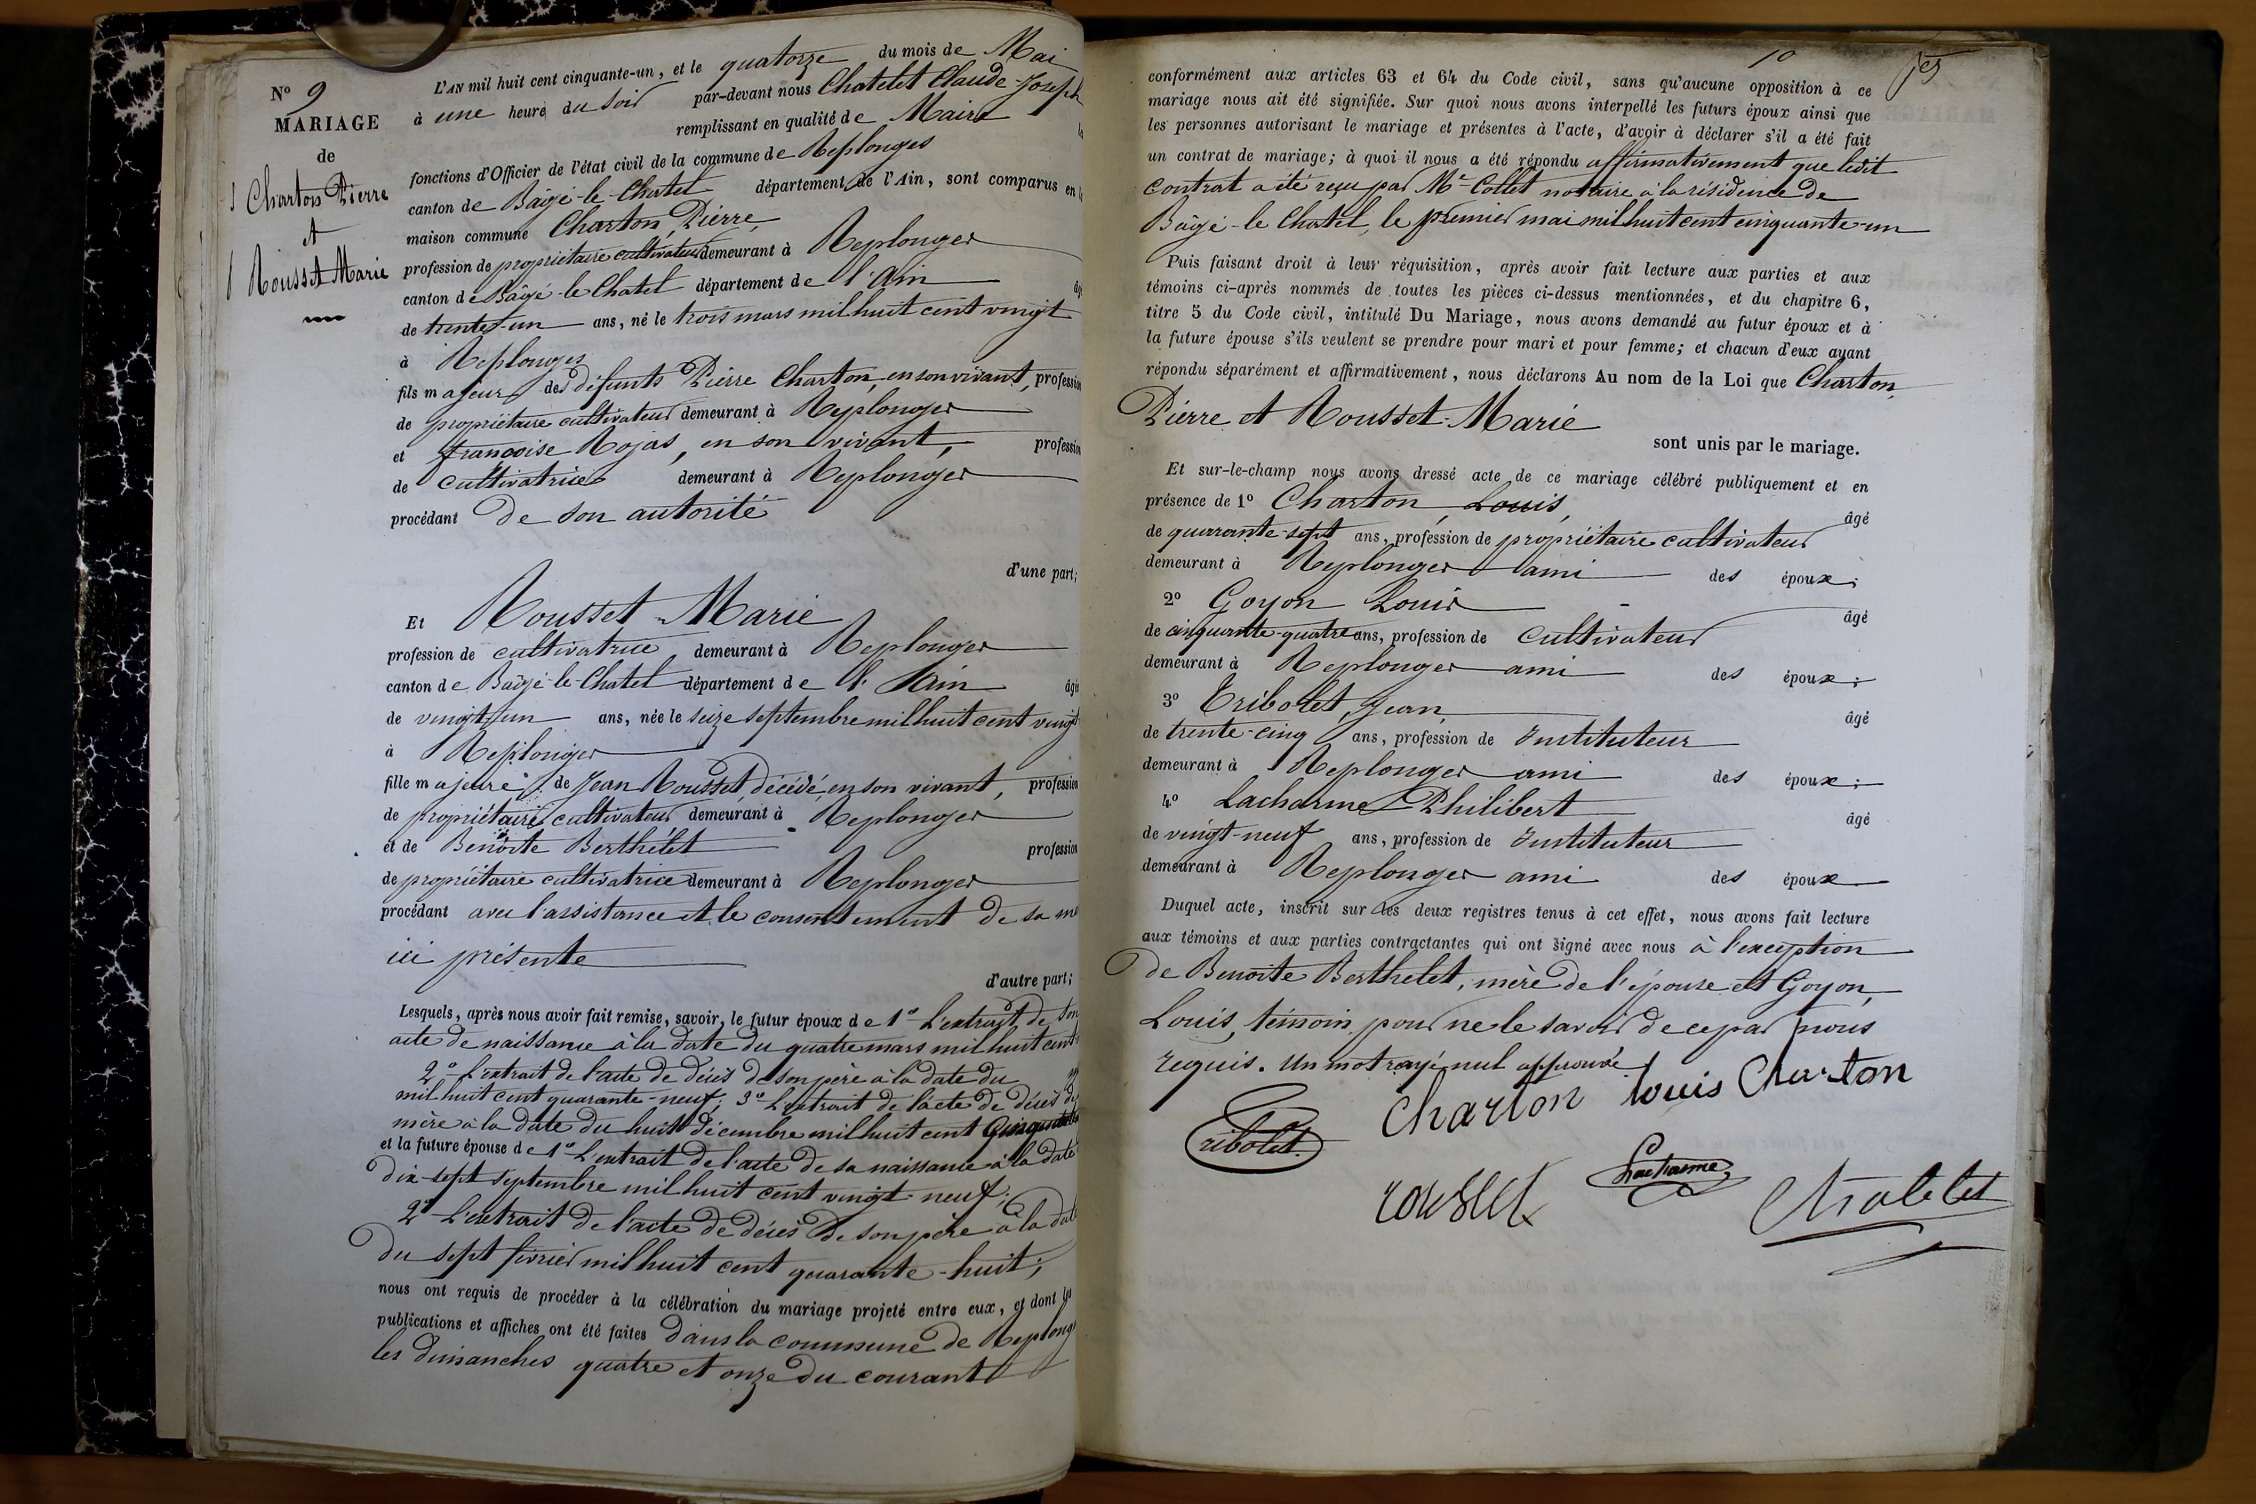 N° 9
MARIAGE
de
Charton Pierre
et
Rousset Marie
L'AN mil huit cent cinquante-un, et le quatorze du mois de Mai
à une heure du soir par-devant nous Chatelet Claude-Joseph
remplissant en qualité de Maire
fonctions d'Officier de l'état civil de la commune de Replonges
canton de Bâgé-le-Chatel département de l'Ain, sont comparus en la
maison commune Charton, Pierre,
profession de propriétaire cultivateur demeurant à Replonges
canton de Bâgé-le-Chatel département de l'Ain âgé
de trente-un ans, né le trois mars mil huit cent vingt
à Replonges
fils majeur des défunts Pierre Charton, en son vivant, profession
de propriétaire cultivateur demeurant à Replonges
et françoise Rojas, en son vivant, profession
de cultivatrice demeurant à Replonges
procédant de son autorité
d'une part;
Et Rousset Marie
profession de cultivatrice demeurant à Replonges
canton de Bâgé-le-Chatel département de l'Ain âgée
de vingt-un ans, née le seize septembre mil huit cent vingt
à Replonges
fille majeure de Jean Rousset, décédé, en son vivant, profession
de propriétaire cultivateur demeurant à Replonges
et de Benoite Berthelet profession
de propriétaire cultivatrice demeurant à Replonges
procédant avec l'assistance et le consentement de sa me
ici présente
d'autre part;
Lesquels, après nous avoir fait remise, savoir, le futur époux de 1° L'extrait de son
acte de naissance à la date du quatre mars mil huit cent
2° L'extrait de l'acte de décès de son père à la date du
mil huit cent quarante-neuf; 3° L'extrait de l'acte de décès de
mère à la date du huit décembre mil huit cent
et la future épouse de 1° L'extrait de l'acte de sa naissance à la date
dix-sept septembre mil huit cent vingt-neuf;
2° L'extrait de l'acte de décès de son père à la date
du sept février mil huit cent quarante-huit;
nous ont requis de procéder à la célébration du mariage projeté entre eux, et dont les
publications et affiches ont été faites dans la commune de Replong
les dimanches quatre et onze du courant
10
conformément aux articles 63 et 64 du Code civil, sans qu'aucune opposition à ce
mariage nous ait été signifiée. Sur quoi nous avons interpellé les futurs époux ainsi que
les personnes autorisant le mariage et présentes à l'acte, d'avoir à déclarer s'il a été fait
un contrat de mariage; à quoi il nous a été répondu affirmativement que ledit
contrat a été reçu par Me Collet notaire à la résidence de
Bâgé-le-Chatel, le premier mai mil huit cent cinquante-un
Puis faisant droit à leur réquisition, après avoir fait lecture aux parties et aux
témoins ci-après nommés de toutes les pièces ci-dessus mentionnées, et du chapitre 6,
titre 5 du Code civil, intitulé Du Mariage, nous avons demandé au futur époux et à
la future épouse s'ils veulent se prendre pour mari et pour femme; et chacun d'eux ayant
répondu séparément et affirmativement, nous déclarons Au nom de la Loi que Charton,
Pierre et Rousset Marie
sont unis par le mariage.
Et sur-le-champ nous avons dressé acte de ce mariage célébré publiquement et en
présence de 1° Charton, Louis, âgé
de quarante-sept ans, profession de propriétaire cultivateur
demeurant à Replonges ami des époux;
2° Goyon Louis âgé
de cinquante-quatre ans, profession de cultivateur
demeurant à Replonges ami des époux;
3° Tribolet, Jean, âgé
de trente-cinq ans, profession de Instituteur
demeurant à Replonges ami des époux;
4° Lacharme Philibert âgé
de vingt-neuf ans, profession de Instituteur
demeurant à Replonges ami des époux
Duquel acte, inscrit sur les deux registres tenus à cet effet, nous avons fait lecture
aux témoins et aux parties contractantes qui ont signé avec nous à l'exception
de Benoite Berthelet, mère de l'épouse et Goyon,
Louis, témoin, pour ne le savoir de ce par nous
requis. Un mot rayé nul approuvé
Charton Louis Charton
Tribolet
Rousset Lacharme Chatelet